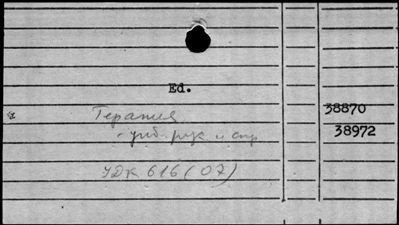 Ed.
38870
Терапия
38972
- учеб. рук. и спр.
УДК 616 (07)